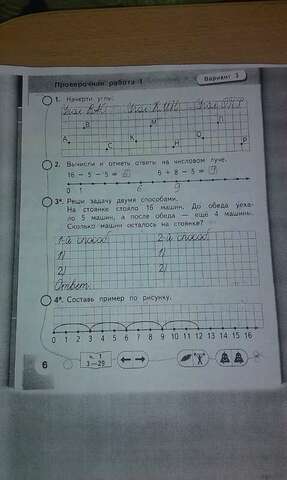 Проверочная работа 1
Вариант 3
1. Начерти углы:
Угол ВАС Угол КМН Угол ОПР
В М П
А К О
С Н Р
2. Вычисли и отметь ответы на числовом луче.
16 – 5 – 5 = 6 6 + 8 – 5 = 9
0 1 6 9
3*. Реши задачу двумя способами.
На стоянке стояло 16 машин. До обеда уеха-
ло 5 машин, а после обеда — ещё 4 машины.
Сколько машин осталось на стоянке?
1-й способ 2-й способ
1) 1)
2) 2)
Ответ:
4*. Составь пример по рисунку.
0 1 2 3 4 5 6 7 8 9 10 11 12 13 14 15 16
6
ч. 1
3—29